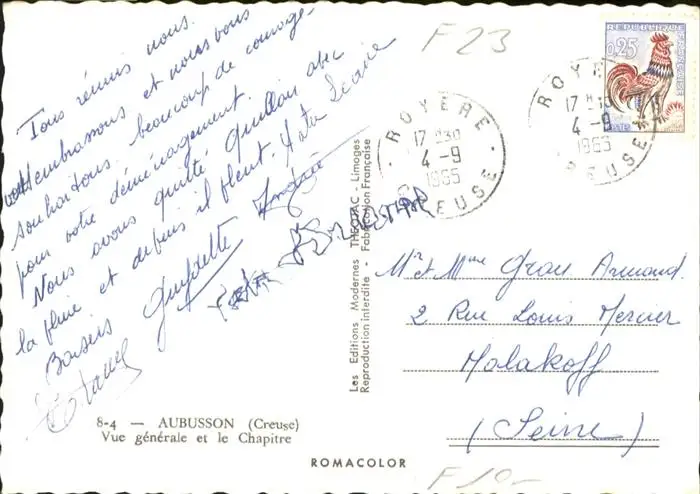 Tous réunis nous
vous embrassons et nous vous
souhaitons beaucoup de courage
pour votre déménagement.
Nous avons quitté Quillan avec
la pluie et depuis il pleut.
Baisers
8-4 — AUBUSSON (Creuse)
Vue générale et le Chapitre
ROMACOLOR
Les Editions Modernes THEOJAC - Limoges
Reproduction interdite - Fabrication Française
F 23
ROYERE
17 H30
4-9
1965
CREUSE
REPUBLIQUE FRANÇAISE
0,25
POSTES
ROYERE
17 H30
4-9
1965
CREUSE
Mr et Mme Grau Armand
2 Rue Louis Mercier
Malakoff
(Seine)
F 10-